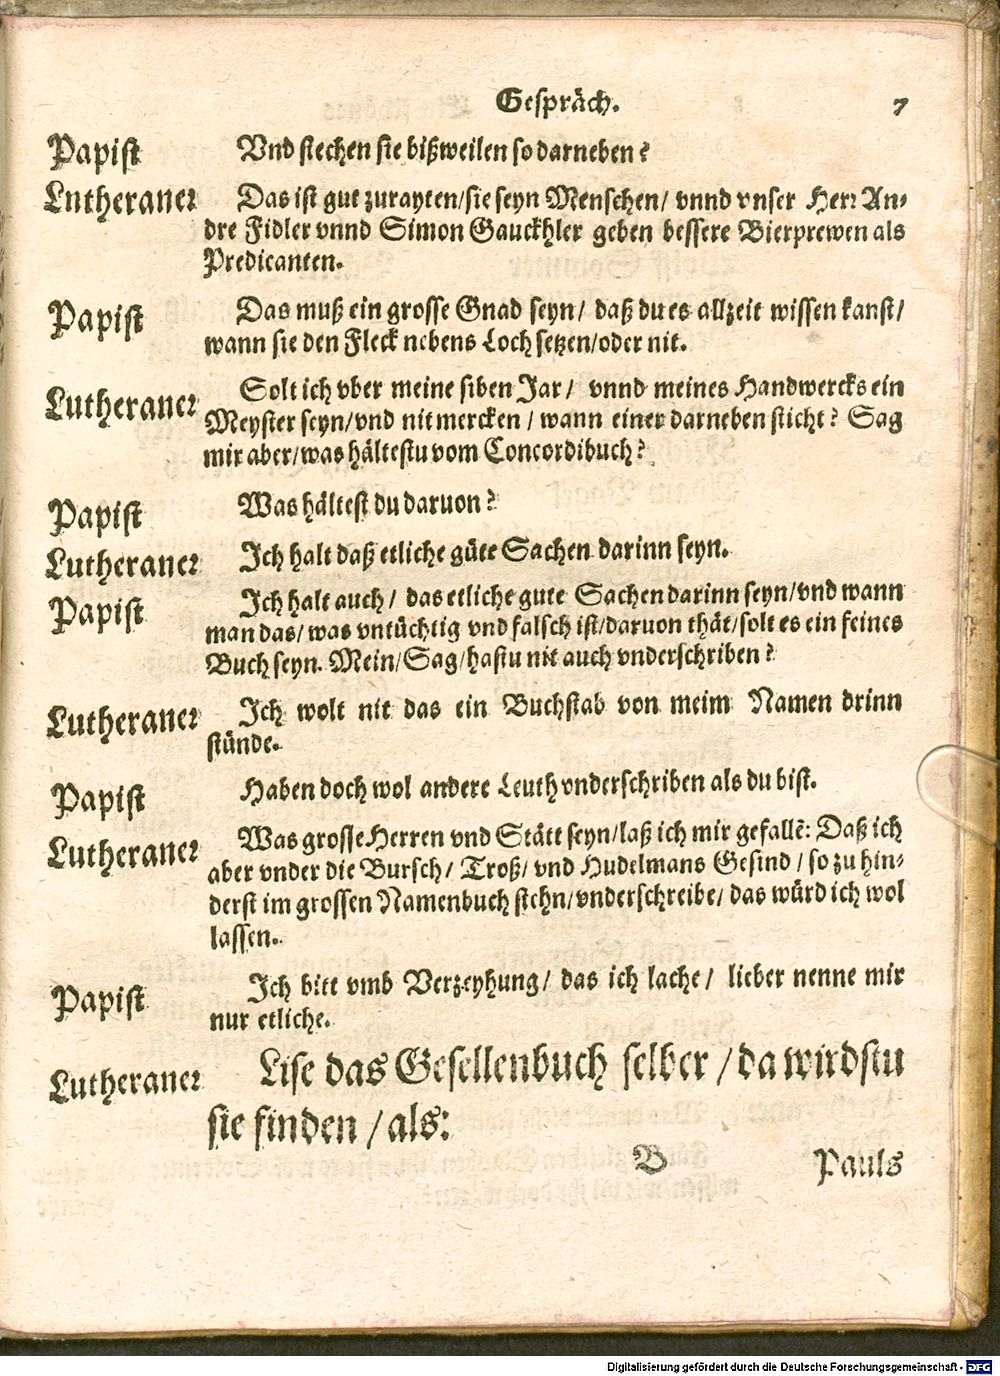 Gespräch. 7
Papist Vnd stechen sie bißweilen so darneben?
Lutheraner Das ist gut zurayten/sie seyn Menschen/ vnnd vnser Herr An-
dre Fidler vnnd Simon Gauckhler geben bessere Bierprewen als
Predicanten.
Papist Das muß ein grosse Gnad seyn/ daß du es allzeit wissen kanst/
wann sie den Fleck nebens Loch setzen/oder nit.
Lutheraner Solt ich vber meine siben Jar/ vnnd meines Handwercks ein
Meyster seyn/vnd nit mercken/ wann einer darneben sticht? Sag
mir aber/was hältestu vom Concordibuch?
Papist Was hältest du daruon?
Lutheraner Ich halt daß etliche güte Sachen darinn seyn.
Papist Ich halt auch/ das etliche gute Sachen darinn seyn/vnd wann
man das/was vntüchtig vnd falsch ist/daruon thät/solt es ein feines
Buch seyn. Mein/Sag/hastu nit auch vnderschriben?
Lutheraner Ich wolt nit das ein Buchstab von meim Namen drinn
stünde.
Papist Haben doch wol andere Leuth vnderschriben als du bist.
Lutheraner Was grosse Herren vnd Stätt seyn/laß ich mir gefallẽ: Daß ich
aber vnder die Bursch/ Troß/ vnd Hudelmans Gesind/ so zu hin-
derst im grossen Namenbuch stehn/vnderschreibe/ das würd ich wol
lassen.
Papist Ich bitt vmb Verzeyhung/ das ich lache/ lieber nenne mir
nur etliche.
Lutheraner Lise das Gesellenbuch selber/da wirdstu
sie finden/als:
B Pauls
Digitalisierung gefördert durch die Deutsche Forschungsgemeinschaft - DFG